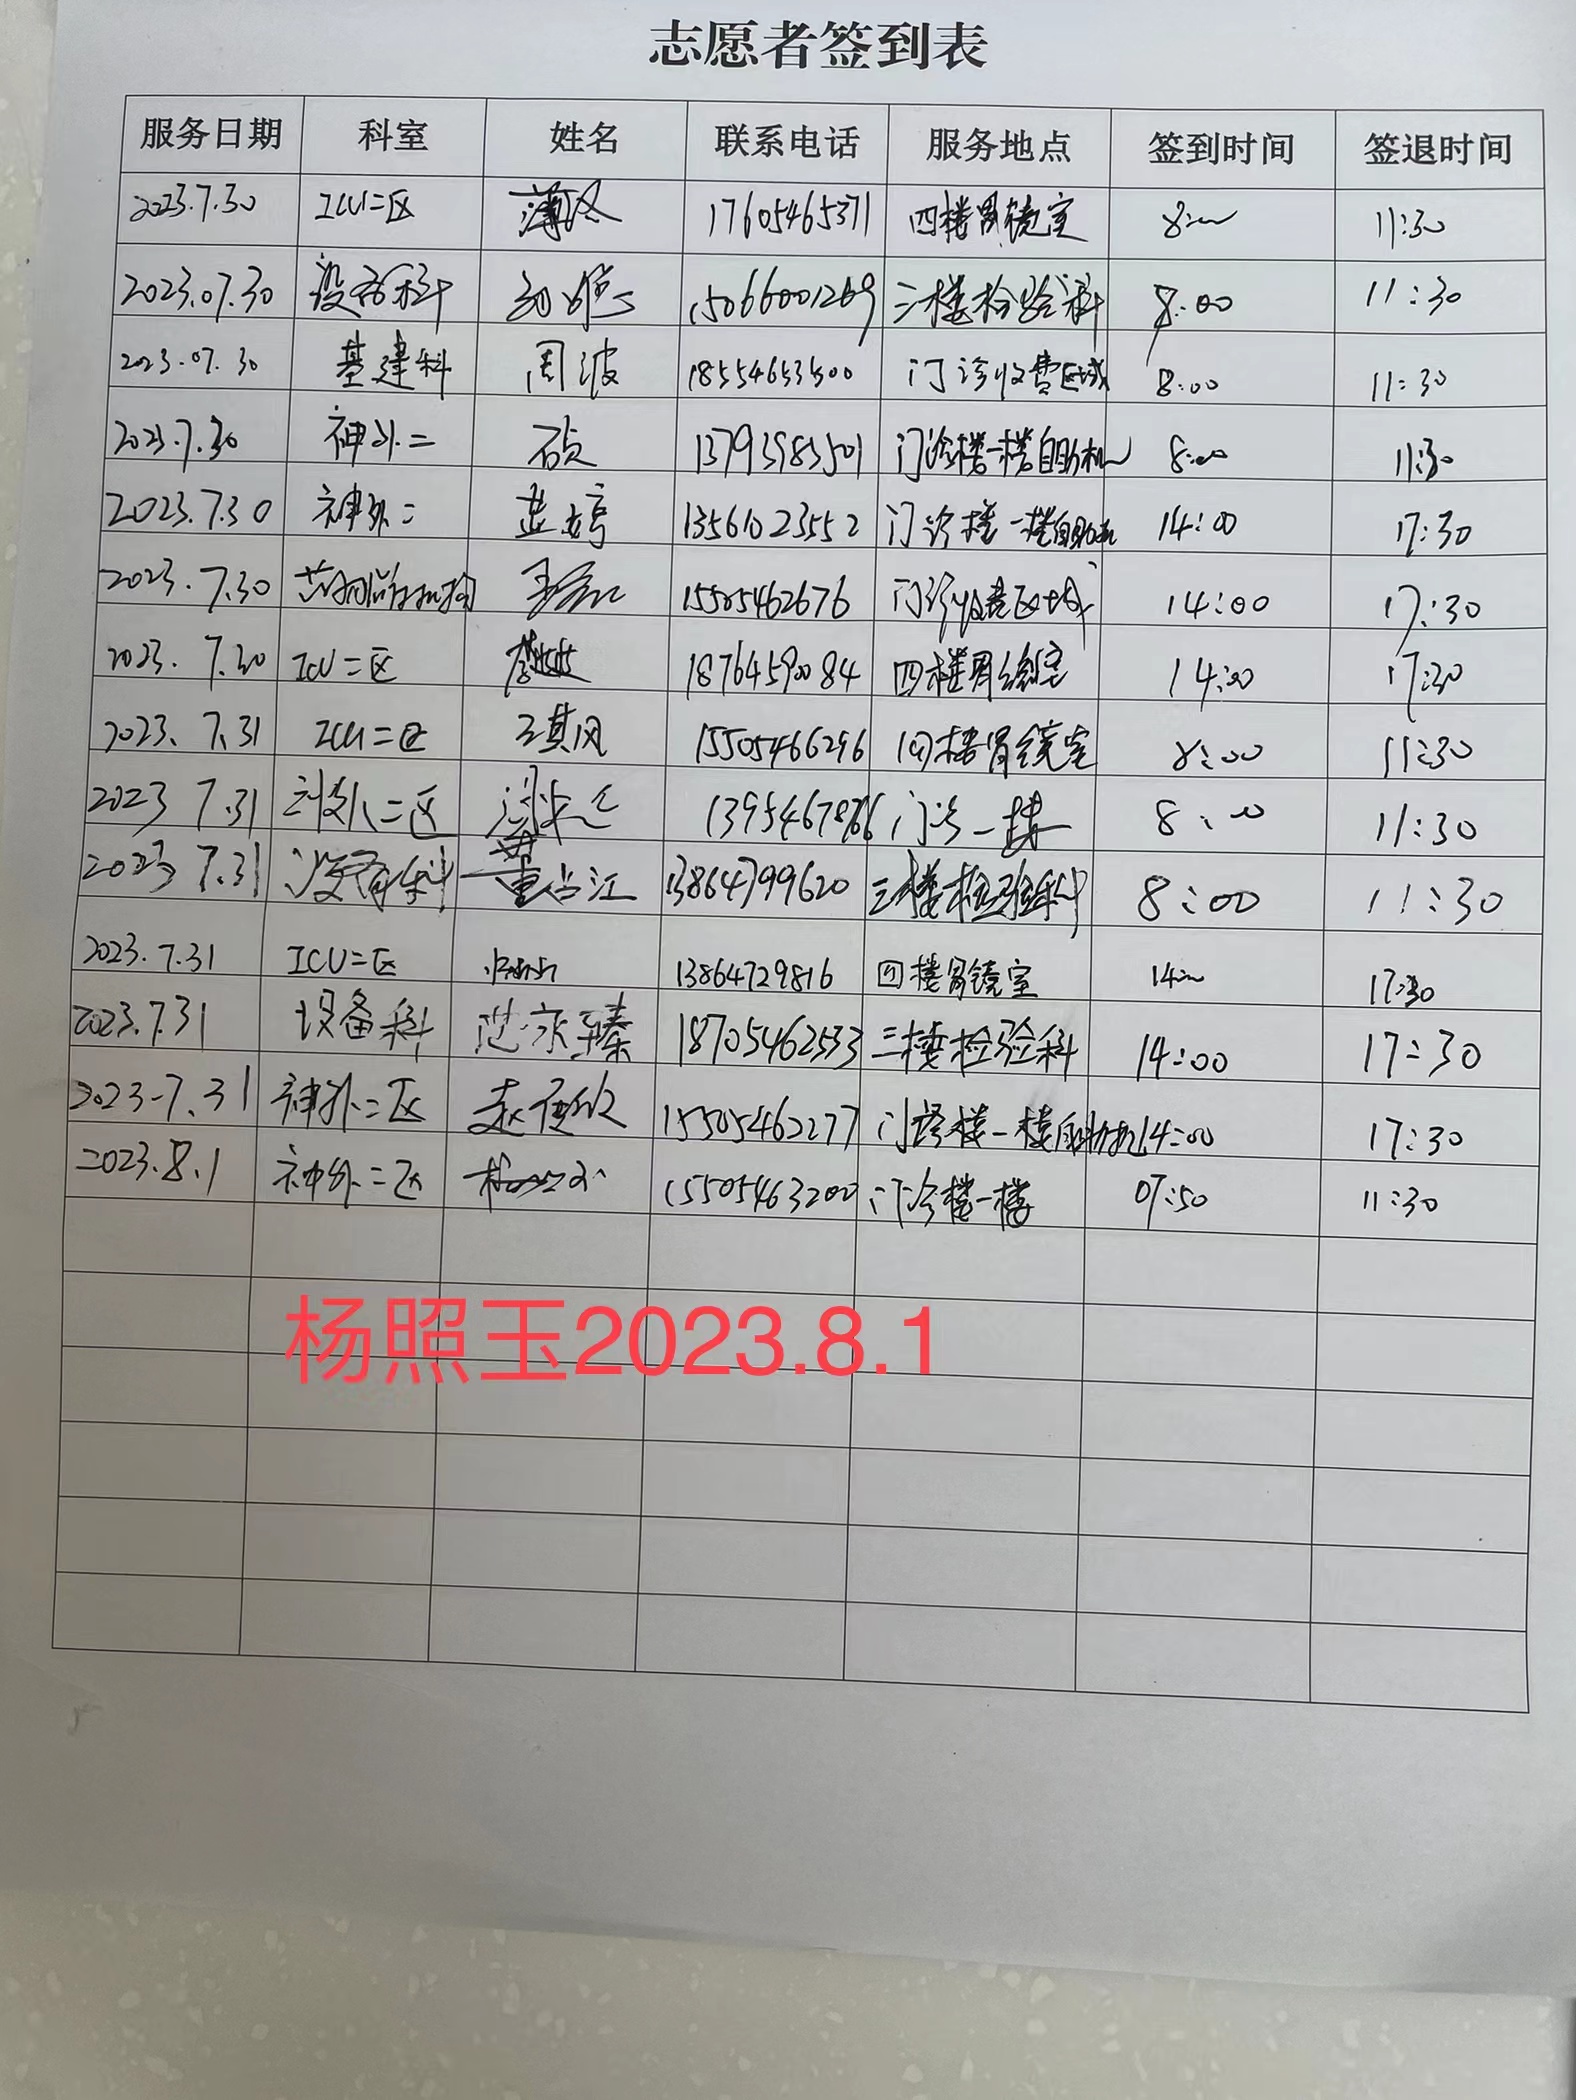 志愿者签到表
服务日期 科室 姓名 联系电话 服务地点 签到时间 签退时间
2023.7.30 ICU二区 17605465371 四楼胃镜室 8:00 11:30
2023.07.30 设备科 15066001269 三楼检验科 8:00 11:30
2023.07.30 基建科 周波 18554653500 门诊收费区域 8:00 11:30
2023.7.30 神外二 石贞 13793983501 门诊楼一楼自助机 8:00 11:30
2023.7.30 神外二 13561023552 门诊楼一楼自助机 14:00 17:30
2023.7.30 15505462676 门诊收费区域 14:00 17:30
2023.7.30 ICU二区 18764590084 四楼胃镜室 14:00 17:30
2023.7.31 ICU二区 王其风 15505466296 四楼胃镜室 8:00 11:30
2023 7.31 二区 门诊一楼 8:00 11:30
2023 7.31 设备科 董占江 13864799620 三楼检验科 8:00 11:30
2023.7.31 ICU二区 13864729816 四楼胃镜室 14:00 17:30
2023.7.31 设备科 范永臻 18705462533 三楼检验科 14:00 17:30
2023-7.31 神外二区 15505462277 门诊楼一楼自助机 14:00 17:30
2023.8.1 神外二区 15505463200 门诊楼一楼 07:50 11:30
杨照玉2023.8.1